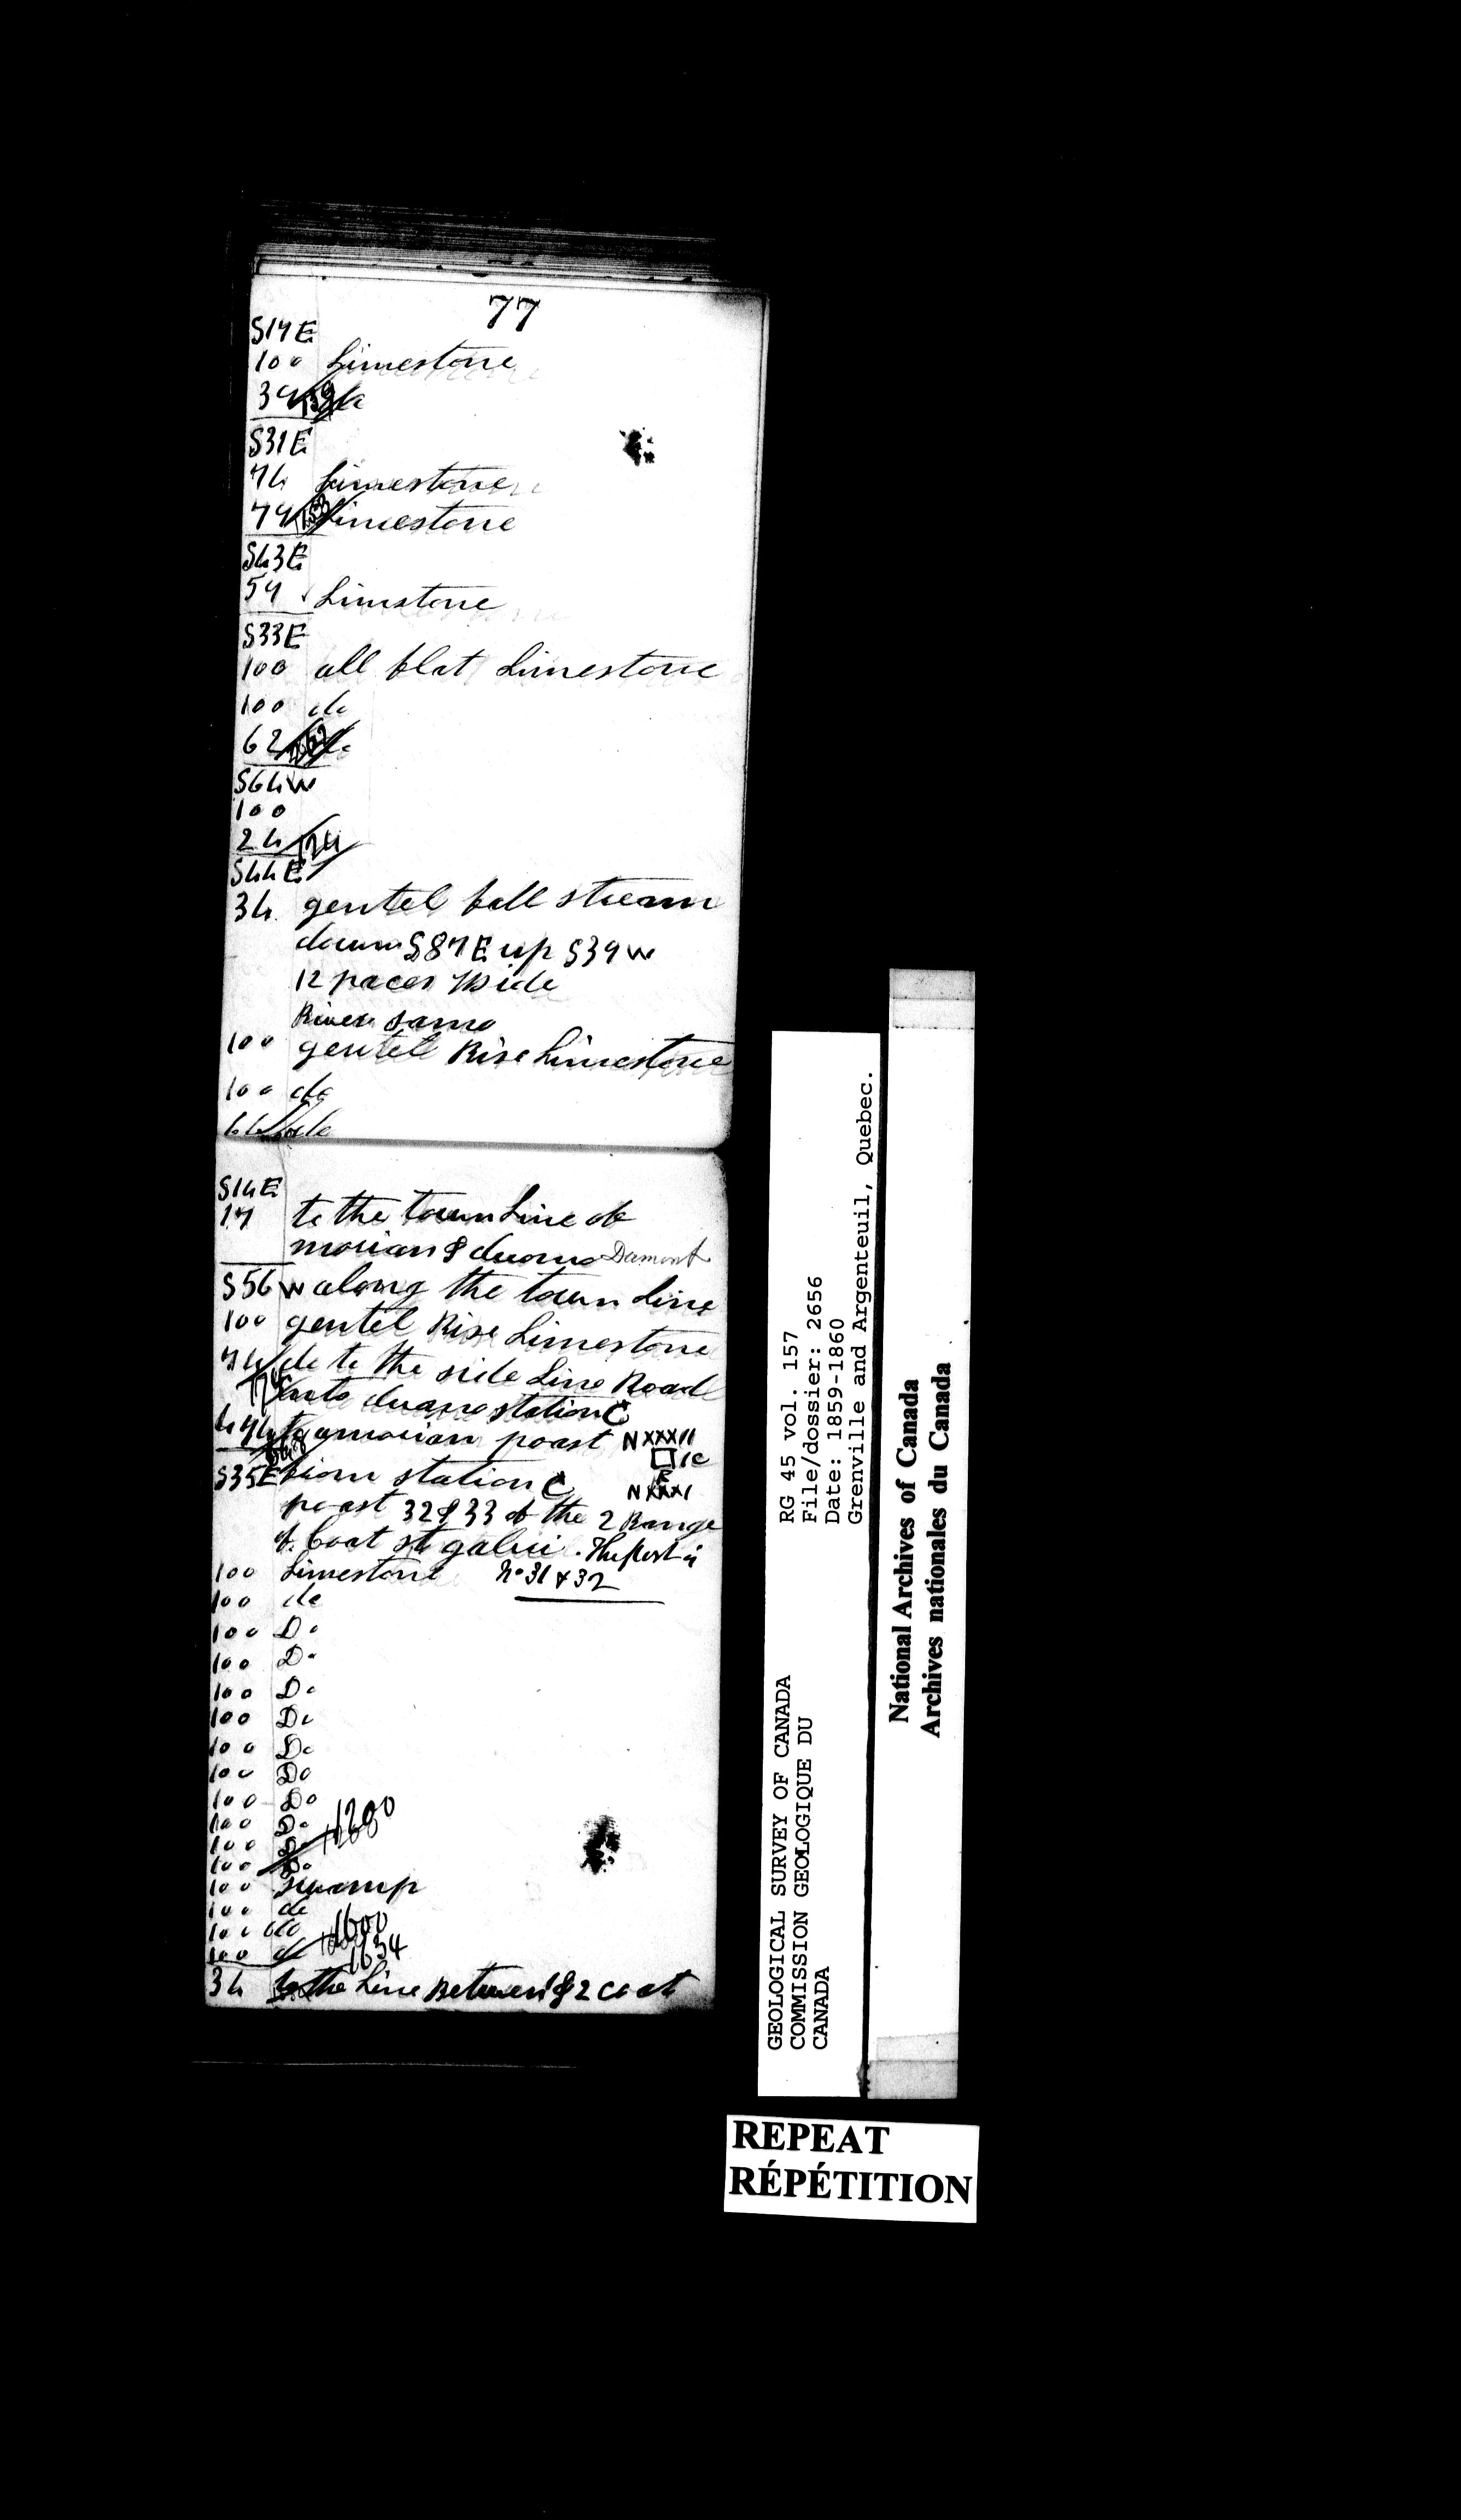 77
S17E
100 Limestone
39 139 do
S31E
74 Limestone
79 Limestone
S43E
59 Limstone
S33E
100 all flat Limestone
100 do
62 262 do
S64W
100
24 124
S44E
34 gentel fall stream
down S87E up S39W
12 paces Wide
River same
100 gentel Rise Limestone
100 do
66 do
S14E
17 to the town Line of
morian & duono Dumont
S56W along the town Line
100 gentel Rise Limestone
74 do to the side Line Road
into duano station C
474 to amorian poast N XXXII
S35E from station C N XXXI
poast 32 & 33 of the 2 Range
of Coat st galui. The post is
100 Limestone No 31 & 32
100 do
100 Do
100 Do
100 Do
100 Do
100 Do
100 Do
100 Do
100 Do 1200
100 Do
100 Do
100 swamp
100 do
100 do 1600
100 do 1634
34 to the Line Between 1 & 2 Coat
GEOLOGICAL SURVEY OF CANADA
COMMISSION GEOLOGIQUE DU
CANADA
RG 45 vol. 157
File/dossier: 2656
Date: 1859-1860
Grenville and Argenteuil, Quebec.
National Archives of Canada
Archives nationales du Canada
REPEAT
RÉPÉTITION